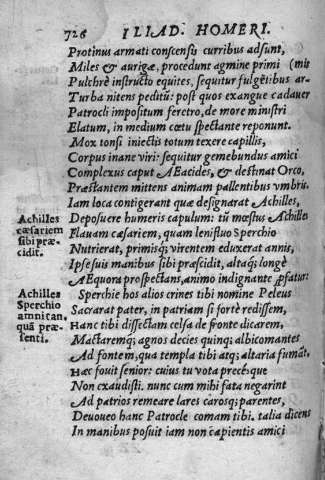 726 ILIAD. HOMERI.
Protinus armati conscensis curribus adsunt,
Miles & aurigæ, procedunt agmine primi (mis
Pulchrè instructo equites, sequitur fulgētibus ar-
Turba nitens peditū: post quos exangue cadauer
Patrocli impositum feretro, de more ministri
Elatum, in medium cœtu spectante reponunt.
Mox tonsi iniectis totum texere capillis,
Corpus inane viri: sequitur gemebundus amici
Complexus caput AEacides, & destinat Orco,
Præstantem mittens animam pallentibus vmbris.
Iam loca contigerant quæ designarat Achilles,
Achilles cæsariem sibi præcidit.
Deposuere humeris capulum: tū mœstus Achilles
Flauam cæsariem, quam leni fluuio Sperchio
Nutrierat, primisq; virentem eduxerat annis,
Ipse suis manibus sibi præscidit, altaq; longè
AEquora prospectans, animo indignante profatur:
Achilles Sperchio amnitan, quā præsenti.
Sperchie hos alios crines tibi nomine Peleus
Sacrarat pater, in patriam si fortè redissem,
Hanc tibi dissectam celsa de fronte dicarem,
Mactaremq; agnos decies quinq; albicomantes
Ad fontem, qua templa tibi atq; altaria fumāt.
Hæc fouit senior: cuius tu vota precésque
Non exaudisti. nunc cum mihi fata negarint
Ad patrios remeare lares carosq; parentes,
Deuoueo hanc Patrocle comam tibi. talia dicens
In manibus posuit iam non capientis amici